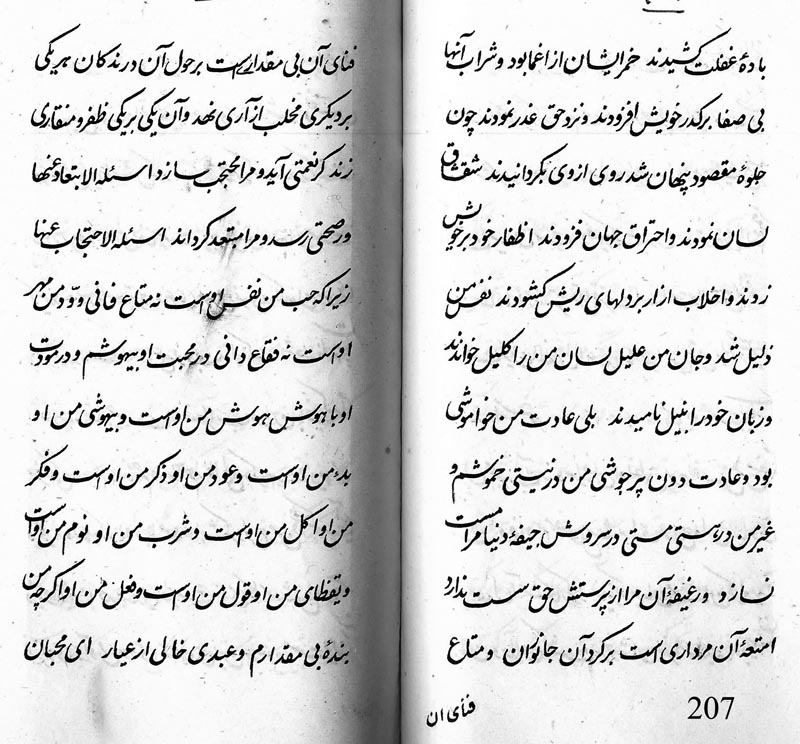 بادهٔ غفلت کشیدند خمرایشان از اغما بود و شراب آنها
بی صفا برکدر خویش افزودند و نزد حق غدر نمودند چون
جلوهٔ مقصود پنهان شد روی از وی بگردانیدند شقاق
لسان نمودند و احتراق جهان فزودند اظفار خود برخویش
زدند و اخلاب ازار بردلهای ریش کشودند نفس من
ذلیل شد و جان من علیل لسان من را کلیل خواندند
و زبان خود را نبیل نامیدند بلی عادت من خواموشی
بود و عادت دون پرجوشی من در نیستی خموشم و
غیر من در هستی مستی در سروش جیفهٔ دنیا مرا مست
نسازد و رغیفهٔ آن مرا از پرستش حق سست ندارد
امتعهٔ آن مرداری است برکرد آن جانوان و متاع
فنای ان
207
فنای آن بی مقدار است برحول آن درندکان هریکی
بر دیکری مخلب از آری نهد و آن یکی بریکی ظفر و منقاری
زند کر نعمتی آید و مرا محتجب سازد اسئله الابتعاد عنها
و رصحتی رسد و مرا مبتعد کرداند اسئله الاحتجاب عنها
زیرا که حب من نفس اوست نه متاع فانی و ودّ من مهر
اوست نه فقاع دانی در محبت او بیهوشم و در مودت
او با هوش هوش من اوست و بیهوشی من او
بدء من اوست و عود من او ذکر من اوست و فکر
من او اکل من اوست و شرب من او نوم من اوست
و یقظای من او قول من اوست و فعل من او اکرچه من
بندهٔ بی مقدارم و عبدی خالی از عیار ای محبان